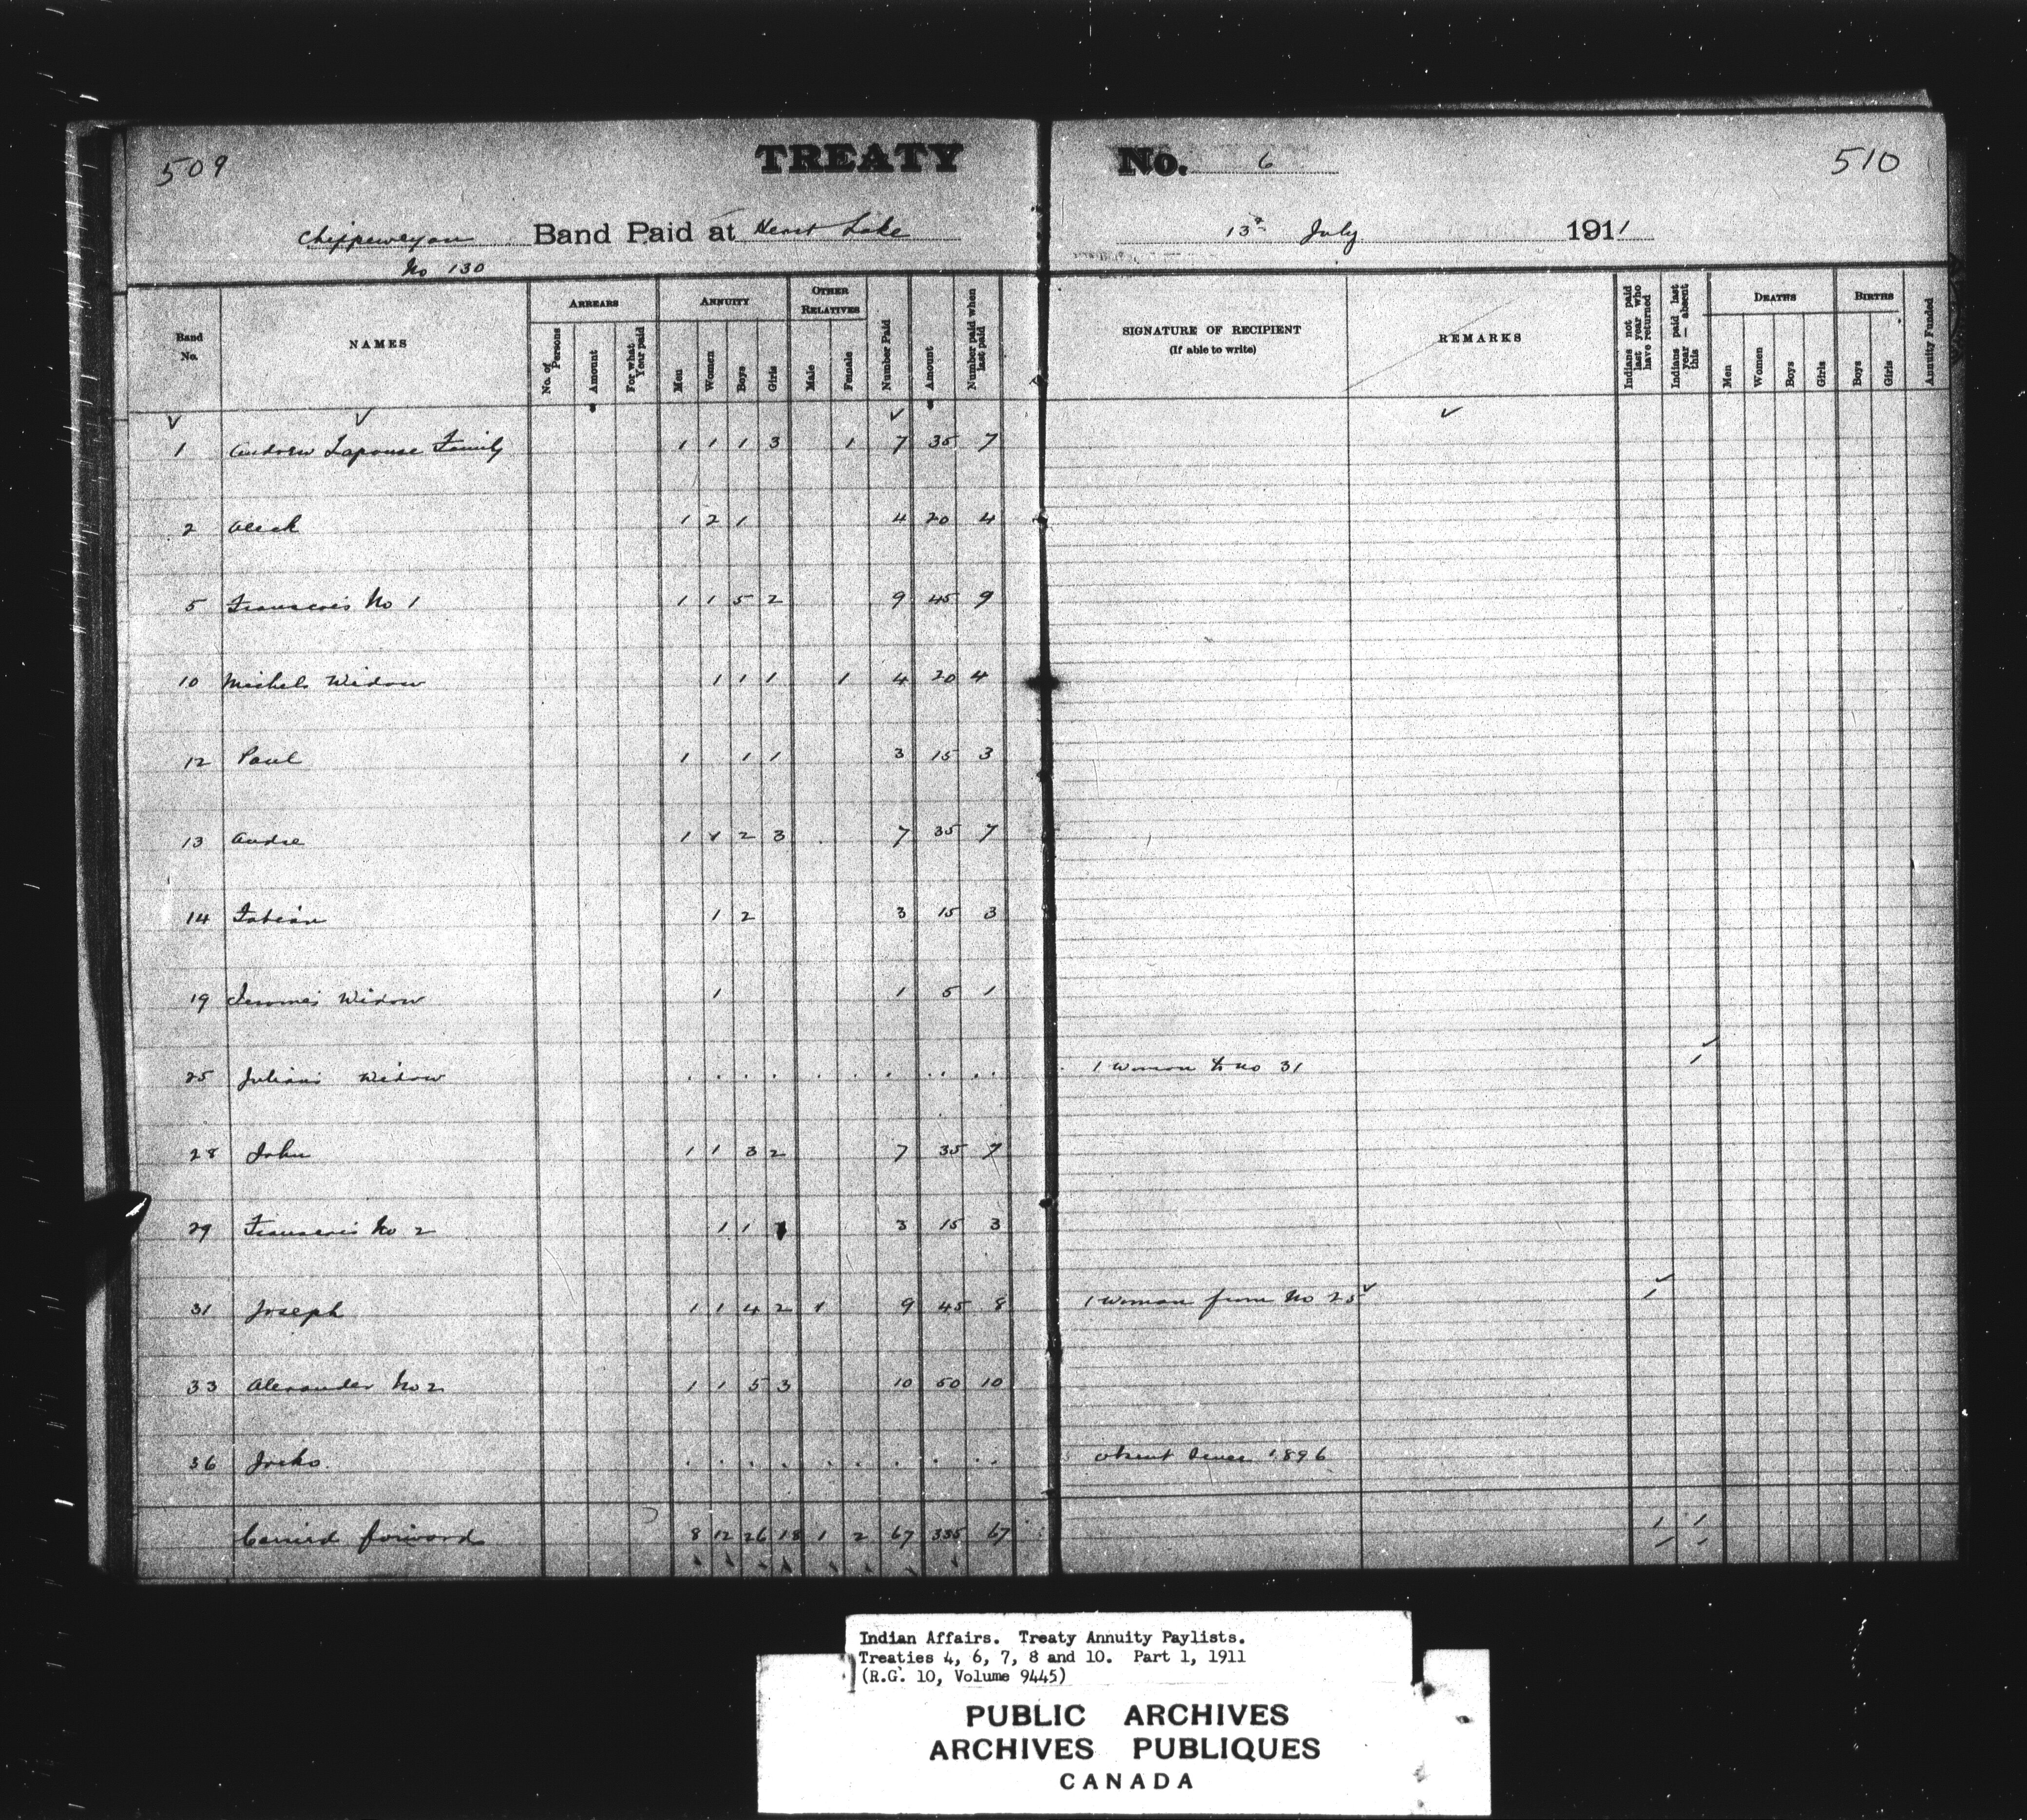 509 TREATY No. 6 510
Chippeweyan Band Paid at Heart Lake 13th July 1911
No 130
Band No. NAMES ARREARS No. of Persons Amount For what Year paid ANNUITY Men Women Boys Girls OTHER RELATIVES Male Female Number Paid Amount Number paid when last paid SIGNATURE OF RECIPIENT (If able to write) REMARKS Indians not paid last year who have returned Indians paid last year — absent this DEATHS Men Women Boys Girls BIRTHS Boys Girls Annuity Funded
1 Andrew Lapouse Family 1 1 1 3 1 7 35 7
2 Aleck 1 2 1 4 20 4
5 Francois No 1 1 1 5 2 9 45 9
10 Michels Widow 1 1 1 1 4 20 4
12 Paul 1 1 1 3 15 3
13 Andre 1 1 2 3 7 35 7
14 Fabian 1 2 3 15 3
19 Jeromes Widow 1 1 5 1
25 Julians Widow . . . . . . . . . . . 1 woman to no 31 1
28 John 1 1 3 2 7 35 7
29 Francois No 2 1 1 1 3 15 3
31 Joseph 1 1 4 2 1 9 45 8 1 woman from No 25 1
33 Alexander No 2 1 1 5 3 10 50 10
36 Joeko . . . . . . . . . . absent since 1896
Carried forward 8 12 26 18 1 2 67 335 67 1 1
Indian Affairs. Treaty Annuity Paylists.
Treaties 4, 6, 7, 8 and 10. Part 1, 1911
(R.G. 10, Volume 9445)
PUBLIC ARCHIVES
ARCHIVES PUBLIQUES
CANADA